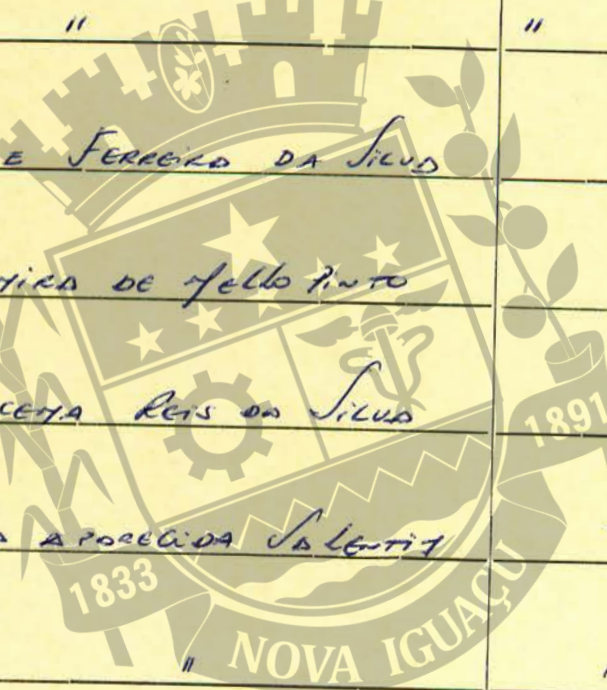 " "
E FERREIRA DA SILVA
MIRA DE MELLO PINTO
CEMA REIS DA SILVA
APARECIDA VALENTIM
1891
1833
"
NOVA IGUAÇU